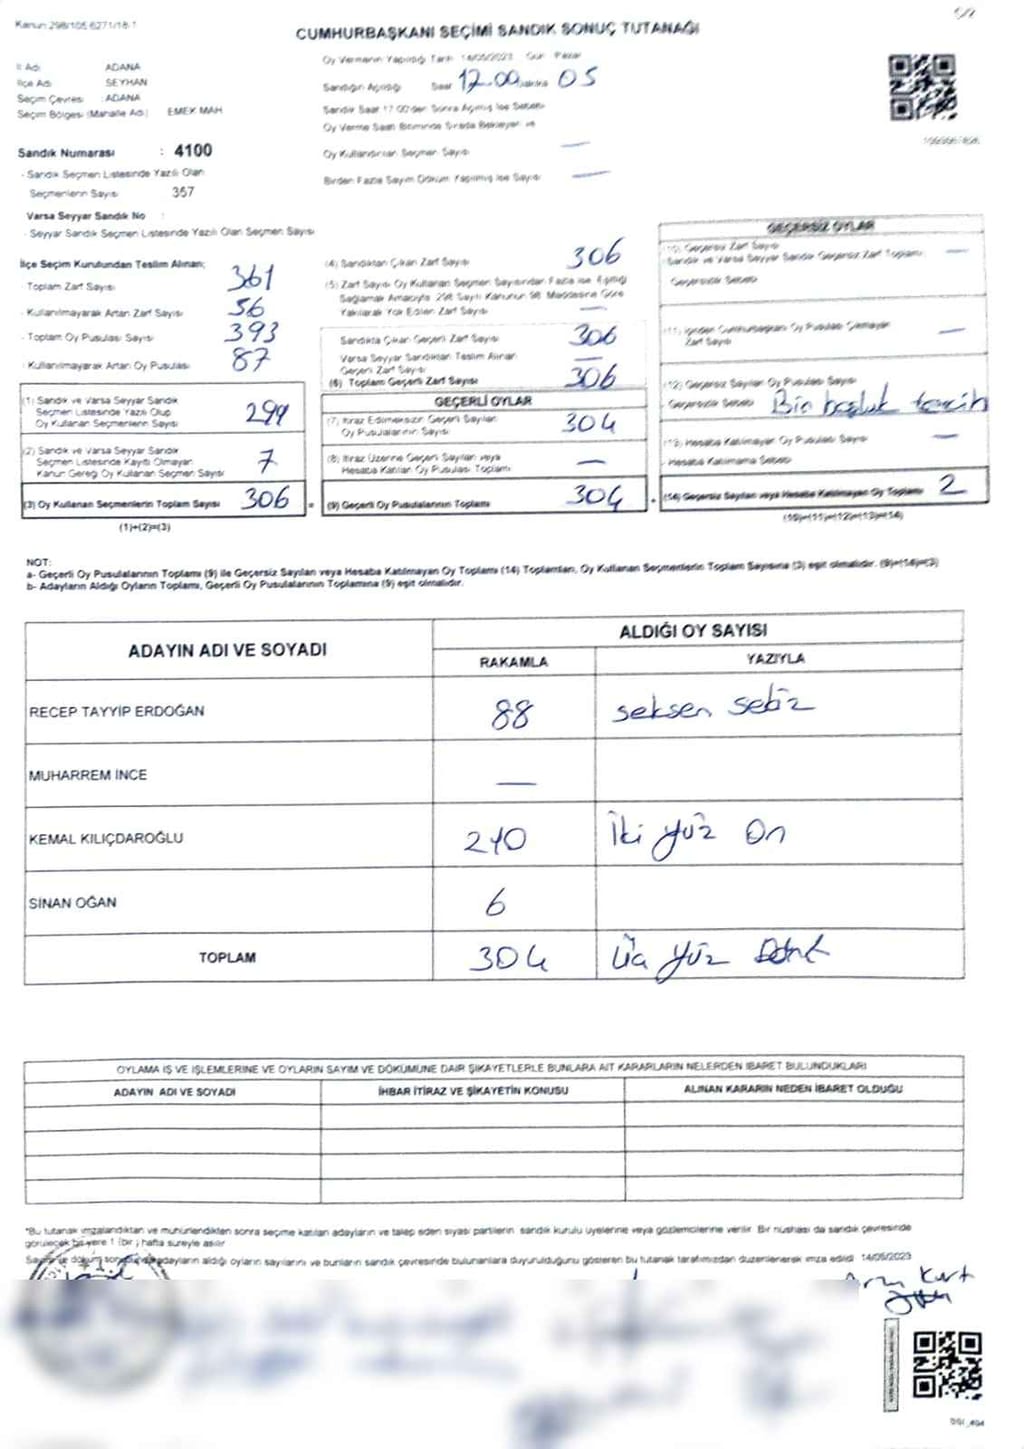 Kanun 298/105 6271/18-1
CUMHURBAŞKANI SEÇİMİ SANDIK SONUÇ TUTANAĞI
İl Adı ADANA
İlçe Adı SEYHAN
Seçim Çevresi : ADANA
Seçim Bölgesi (Mahalle Adı) EMEK MAH
Sandık Numarası : 4100
- Sandık Seçmen Listesinde Yazılı Olan
Seçmenlerin Sayısı 357
Varsa Seyyar Sandık No :
- Seyyar Sandık Seçmen Listesinde Yazılı Olan Seçmen Sayısı
Oy Vermenin Yapıldığı Tarih 14/05/2023 Gün Pazar
Sandığın Açıldığı Saat 17.00 dakika 05
Sandık Saat 17:00'den Sonra Açılmış İse Sebebi
Oy Verme Saati Bitiminde Sırada Bekleyen ve
Oy Kullandırılan Seçmen Sayısı —
Birden Fazla Sayım Döküm Yapılmış İse Sayısı —
İlçe Seçim Kurulundan Teslim Alınan;
- Toplam Zarf Sayısı 361
- Kullanılmayarak Artan Zarf Sayısı 56
- Toplam Oy Pusulası Sayısı 393
- Kullanılmayarak Artan Oy Pusulası 87
(1) Sandık ve Varsa Seyyar Sandık
Seçmen Listesinde Yazılı Olup
Oy Kullanan Seçmenlerin Sayısı 299
(2) Sandık ve Varsa Seyyar Sandık
Seçmen Listesinde Kayıtlı Olmayan
Kanun Gereği Oy Kullanan Seçmen Sayısı 7
(3) Oy Kullanan Seçmenlerin Toplam Sayısı 306
(1)+(2)=(3)
(4) Sandıktan Çıkan Zarf Sayısı 306
(5) Zarf Sayısı Oy Kullanan Seçmen Sayısından Fazla ise Eşitliği
Sağlamak Amacıyla 298 Sayılı Kanunun 98. Maddesine Göre
Yakılarak Yok Edilen Zarf Sayısı —
Sandıkta Çıkan Geçerli Zarf Sayısı 306
Varsa Seyyar Sandıktan Teslim Alınan
Geçerli Zarf Sayısı —
(6) Toplam Geçerli Zarf Sayısı 306
GEÇERLİ OYLAR
(7) İtiraz Edilmeksizin Geçerli Sayılan
Oy Pusulalarının Sayısı 304
(8) İtiraz Üzerine Geçerli Sayılan veya
Hesaba Katılan Oy Pusulası Toplamı —
(9) Geçerli Oy Pusulalarının Toplamı 304
GEÇERSİZ OYLAR
(10) Geçersiz Zarf Sayısı
- Sandık ve Varsa Seyyar Sandık Geçersiz Zarf Toplamı —
Geçersizlik Sebebi
(11) İçinden Cumhurbaşkanı Oy Pusulası Çıkmayan
Zarf Sayısı —
(12) Geçersiz Sayılan Oy Pusulası Sayısı
- Geçersizlik Sebebi
(13) Hesaba Katılmayan Oy Pusulası Sayısı —
- Hesaba Katılmama Sebebi
(14) Geçersiz Sayılan veya Hesaba Katılmayan Oy Toplamı 2
(10)+(11)+(12)+(13)=(14)
NOT:
a- Geçerli Oy Pusulalarının Toplamı (9) ile Geçersiz Sayılan veya Hesaba Katılmayan Oy Toplamı (14) Toplamları, Oy Kullanan Seçmenlerin Toplam Sayısına (3) eşit olmalıdır. (9)+(14)=(3)
b- Adayların Aldığı Oyların Toplamı, Geçerli Oy Pusulalarının Toplamına (9) eşit olmalıdır.
ADAYIN ADI VE SOYADI ALDIĞI OY SAYISI
RAKAMLA YAZIYLA
RECEP TAYYİP ERDOĞAN 88 seksen sekiz
MUHARREM İNCE —
KEMAL KILIÇDAROĞLU 210 İki yüz On
SİNAN OĞAN 6
TOPLAM 304 Üç yüz Dört
OYLAMA İŞ VE İŞLEMLERİNE VE OYLARIN SAYIM VE DÖKÜMÜNE DAİR ŞİKAYETLERLE BUNLARA AİT KARARLARIN NELERDEN İBARET BULUNDUKLARI
ADAYIN ADI VE SOYADI İHBAR İTİRAZ VE ŞİKAYETİN KONUSU ALINAN KARARIN NEDEN İBARET OLDUĞU
*Bu tutanak imzalandıktan ve mühürlendikten sonra seçime katılan adayların ve talep eden siyasi partilerin sandık kurulu üyelerine veya gözlemcilerine verilir. Bir nüshası da sandık çevresinde
görülecek bir yere 1 (bir) hafta süreyle asılır
Sayım ve döküm sonunda adayların aldığı oyların sayılarını ve bunların sandık çevresinde bulunanlara duyurulduğunu gösteren bu tutanak tarafımızdan düzenlenerek imza edildi 14/05/2023
Kurt